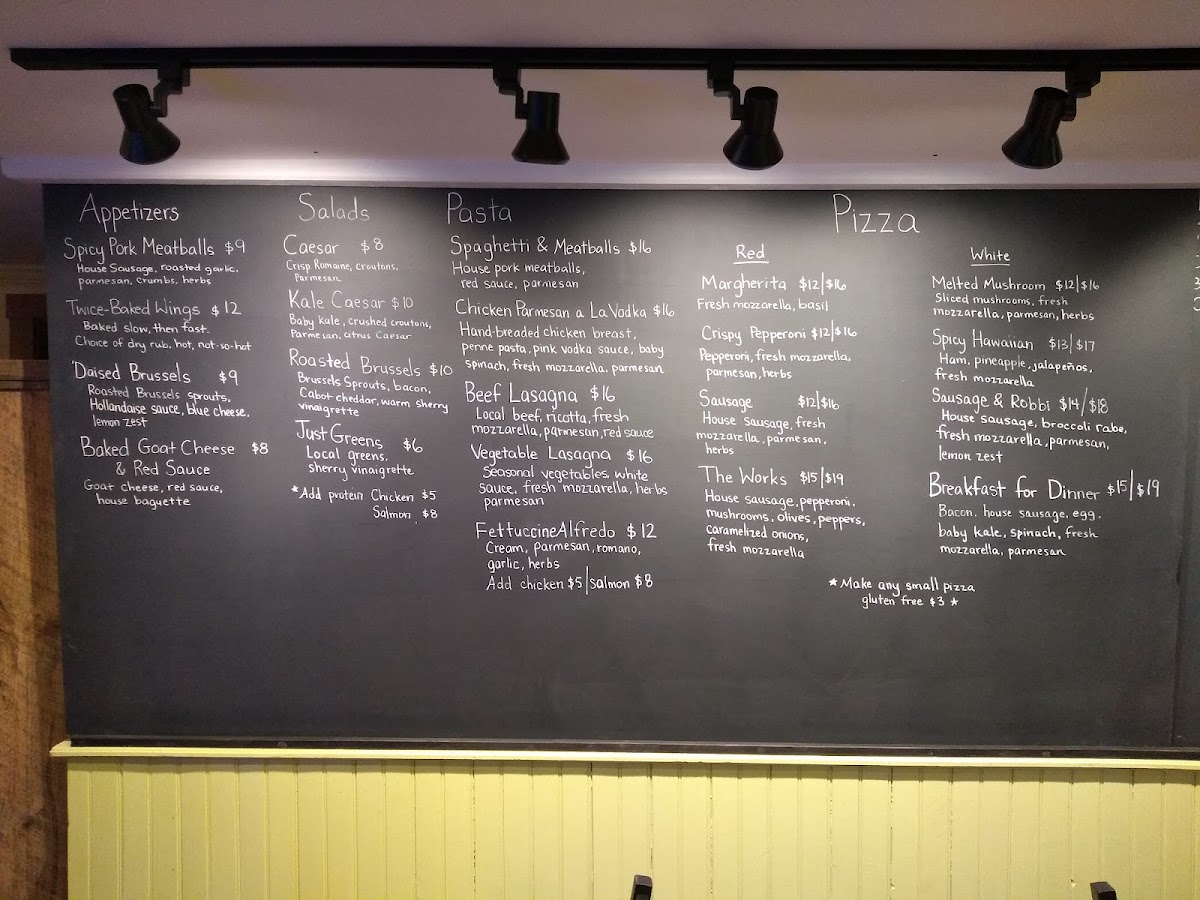 Appetizers
Spicy Pork Meatballs $9
House Sausage, roasted garlic,
parmesan, crumbs, herbs
Twice-Baked Wings $12
Baked slow, then fast.
Choice of dry rub, hot, not-so-hot
'Daised Brussels $9
Roasted Brussels sprouts,
Hollandaise sauce, blue cheese,
lemon zest
Baked Goat Cheese $8
& Red Sauce
Goat cheese, red sauce,
house baguette
Salads
Caesar $8
Crisp Romaine, croutons,
Parmesan
Kale Caesar $10
Baby kale, crushed croutons,
Parmesan, citrus Caesar
Roasted Brussels $10
Brussels Sprouts, bacon,
Cabot cheddar, warm sherry
vinaigrette
Just Greens $6
Local greens,
sherry vinaigrette
*Add protein Chicken $5
Salmon $8
Pasta
Spaghetti & Meatballs $16
House pork meatballs,
red sauce, parmesan
Chicken Parmesan a La Vodka $16
Hand-breaded chicken breast,
penne pasta, pink vodka sauce, baby
spinach, fresh mozzarella, parmesan
Beef Lasagna $16
Local beef, ricotta, fresh
mozzarella, parmesan, red sauce
Vegetable Lasagna $16
Seasonal vegetables, white
sauce, fresh mozzarella, herbs
parmesan
Fettuccine Alfredo $12
Cream, parmesan, romano,
garlic, herbs
Add chicken $5/salmon $8
Pizza
Red
Margherita $12/$16
Fresh mozzarella, basil
Crispy Pepperoni $12/$16
Pepperoni, fresh mozzarella,
parmesan, herbs
Sausage $12/$16
House Sausage, fresh
mozzarella, parmesan,
herbs
The Works $15/$19
House sausage, pepperoni,
mushrooms, olives, peppers,
caramelized onions,
fresh mozzarella
White
Melted Mushroom $12/$16
Sliced mushrooms, fresh
mozzarella, parmesan, herbs
Spicy Hawaiian $13/$17
Ham, pineapple, jalapeños,
fresh mozzarella
Sausage & Robbi $14/$18
House sausage, broccoli rabe,
fresh mozzarella, parmesan,
lemon zest
Breakfast for Dinner $15/$19
Bacon, house sausage, egg,
baby kale, spinach, fresh
mozzarella, parmesan
* Make any small pizza
gluten free $3 *